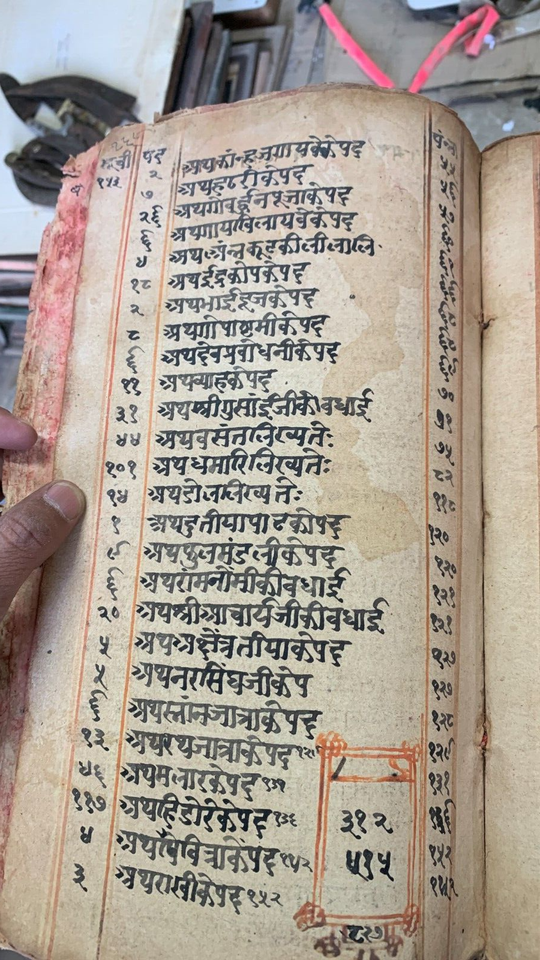 सूची पद पत्र
१५३ २ अथ कांन्ह जगायवेके पद ५५
७ अथ हटरी के पद ५६
२६ अथ गोवर्द्धन पूजा के पद ५७
६ अथ गाय खिलायवे के पद
५ अथ अंन्नकूट की लीला लि॰
१८ अथ ईंद्रकोप के पद
२ अथ भाईदूज के पद
८ अथ गोपाष्टमी के पद
६ अथ देवप्रबोधनी के पद
११ अथ व्याह के पद ७०
३१ अथ श्रीगुसांईजी की बधाई ७१
४४ अथ वसंत लिख्यते: ७५
१०१ अथ धमारि लिख्यते: ८२
१४ अथ डोल लिख्यते: ११८
१ अथ दुतीया पाट को पद १२०
९ अथ फुलमंडली के पद १२०
६ अथ रामनोमी की बधाई १२१
२० अथ श्रीआचार्यजी की बधाई १२१
५ अथ अक्षैत्रतीया के पद १२७
५ अथ नरसिंघजी के प १२७
६ अथ स्नानजात्रा के पद १२८
१३ अथ रथजात्रा के पद १२९ १२९
५६ अथ मलार के पद १३१ १३१
११७ अथ हिंडोरे के पद १३६ १३६
४ अथ पवित्रा के पद १५२ १५२
३ अथ राखी के पद १५२ १५२
३१२
५१५
८२७